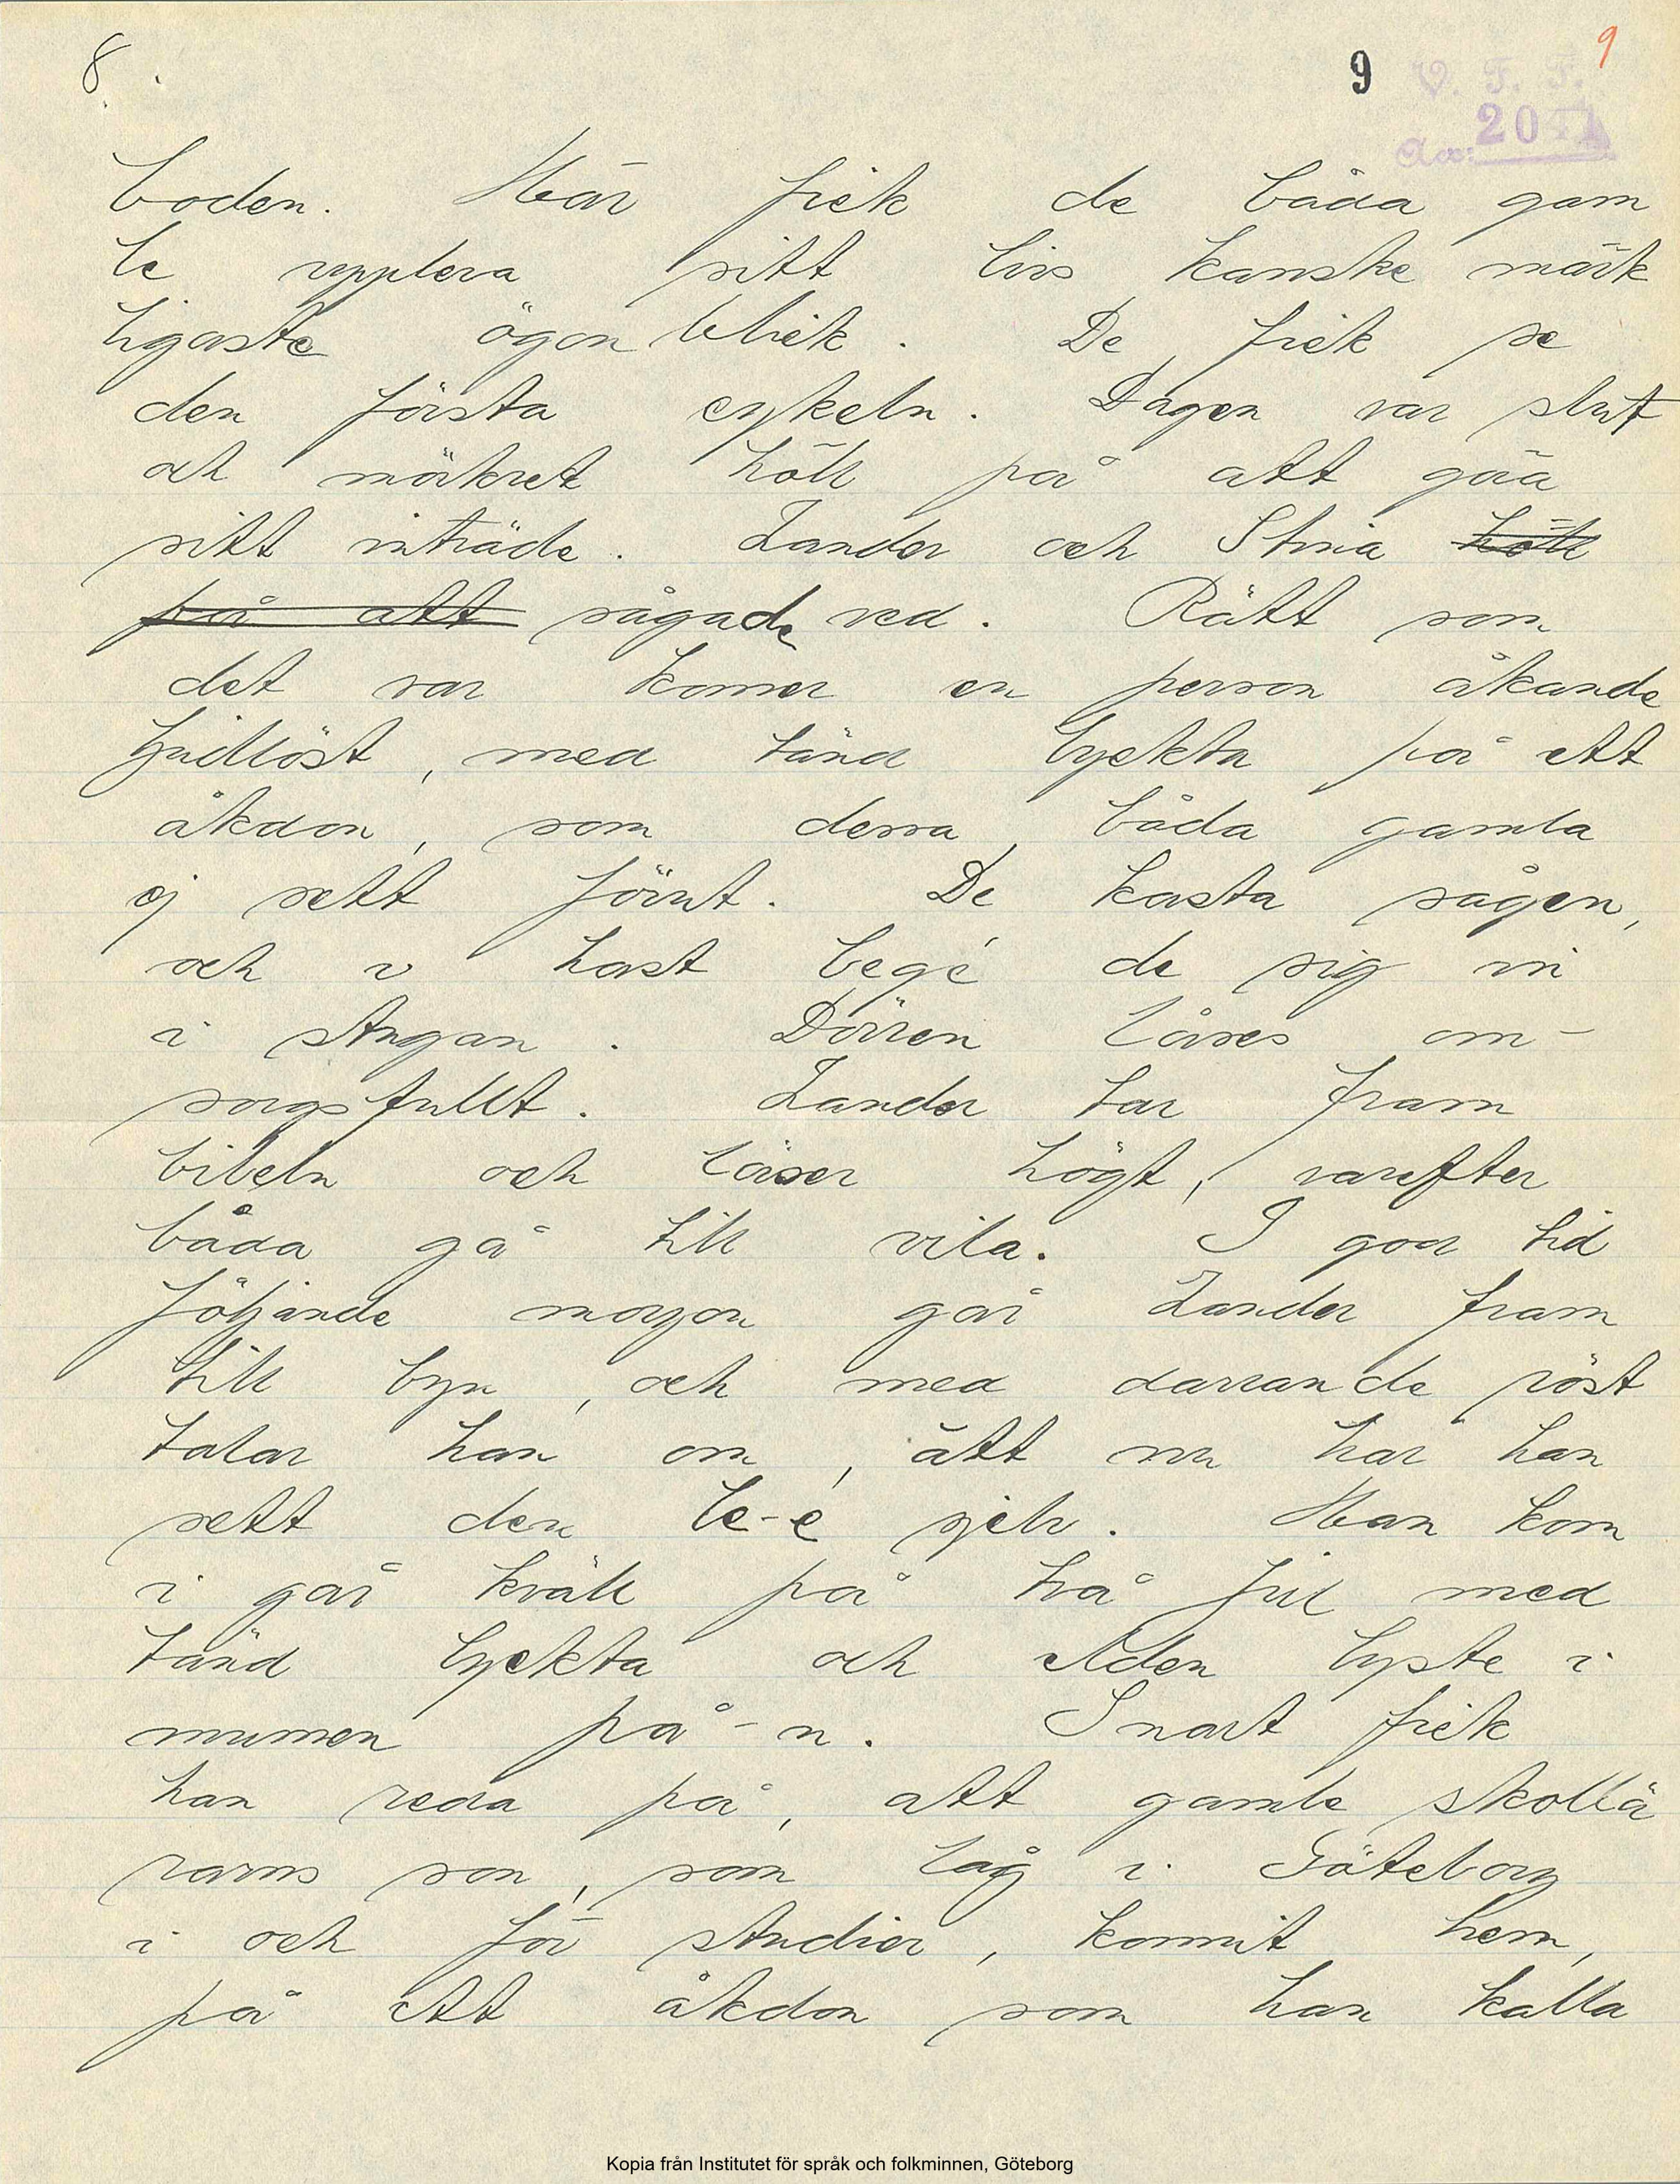 8.
9
9
V. F. F.
Acc: 2041
boden. Här fick de båda gam
le uppleva sitt livs kanske märk
ligaste ögonblick. De fick se
den första cykeln. Dagen var slut
och mörkret höll på att göra
sitt inträde. Zander och Stina höll
på att sågade ved. Rätt som
det var komer en person åkande
ljudlöst, med tänd lyckta på ett
åkdon, som dessa båda gamla
ej sett förut. De kasta sågen,
och i hast begé de sig in
i stugan. Dörren låses om-
sorgsfullt. Zander tar fram
bibeln och läser högt, varefter
båda gå till vila. I god tid
följande morgon går Zander fram
till byn, och med darrande röst
talar han om, att nu har han
sett den le-é sjelv. Han kom
i går kväll på två jul med
tänd lyckta och elden lyste i
munnen på-n. Snart fick
han reda på, att gamle skollä
rarns son, som låg i Göteborg
i och för studier, kommit hem,
på ett åkdon som han kalla
Kopia från Institutet för språk och folkminnen, Göteborg